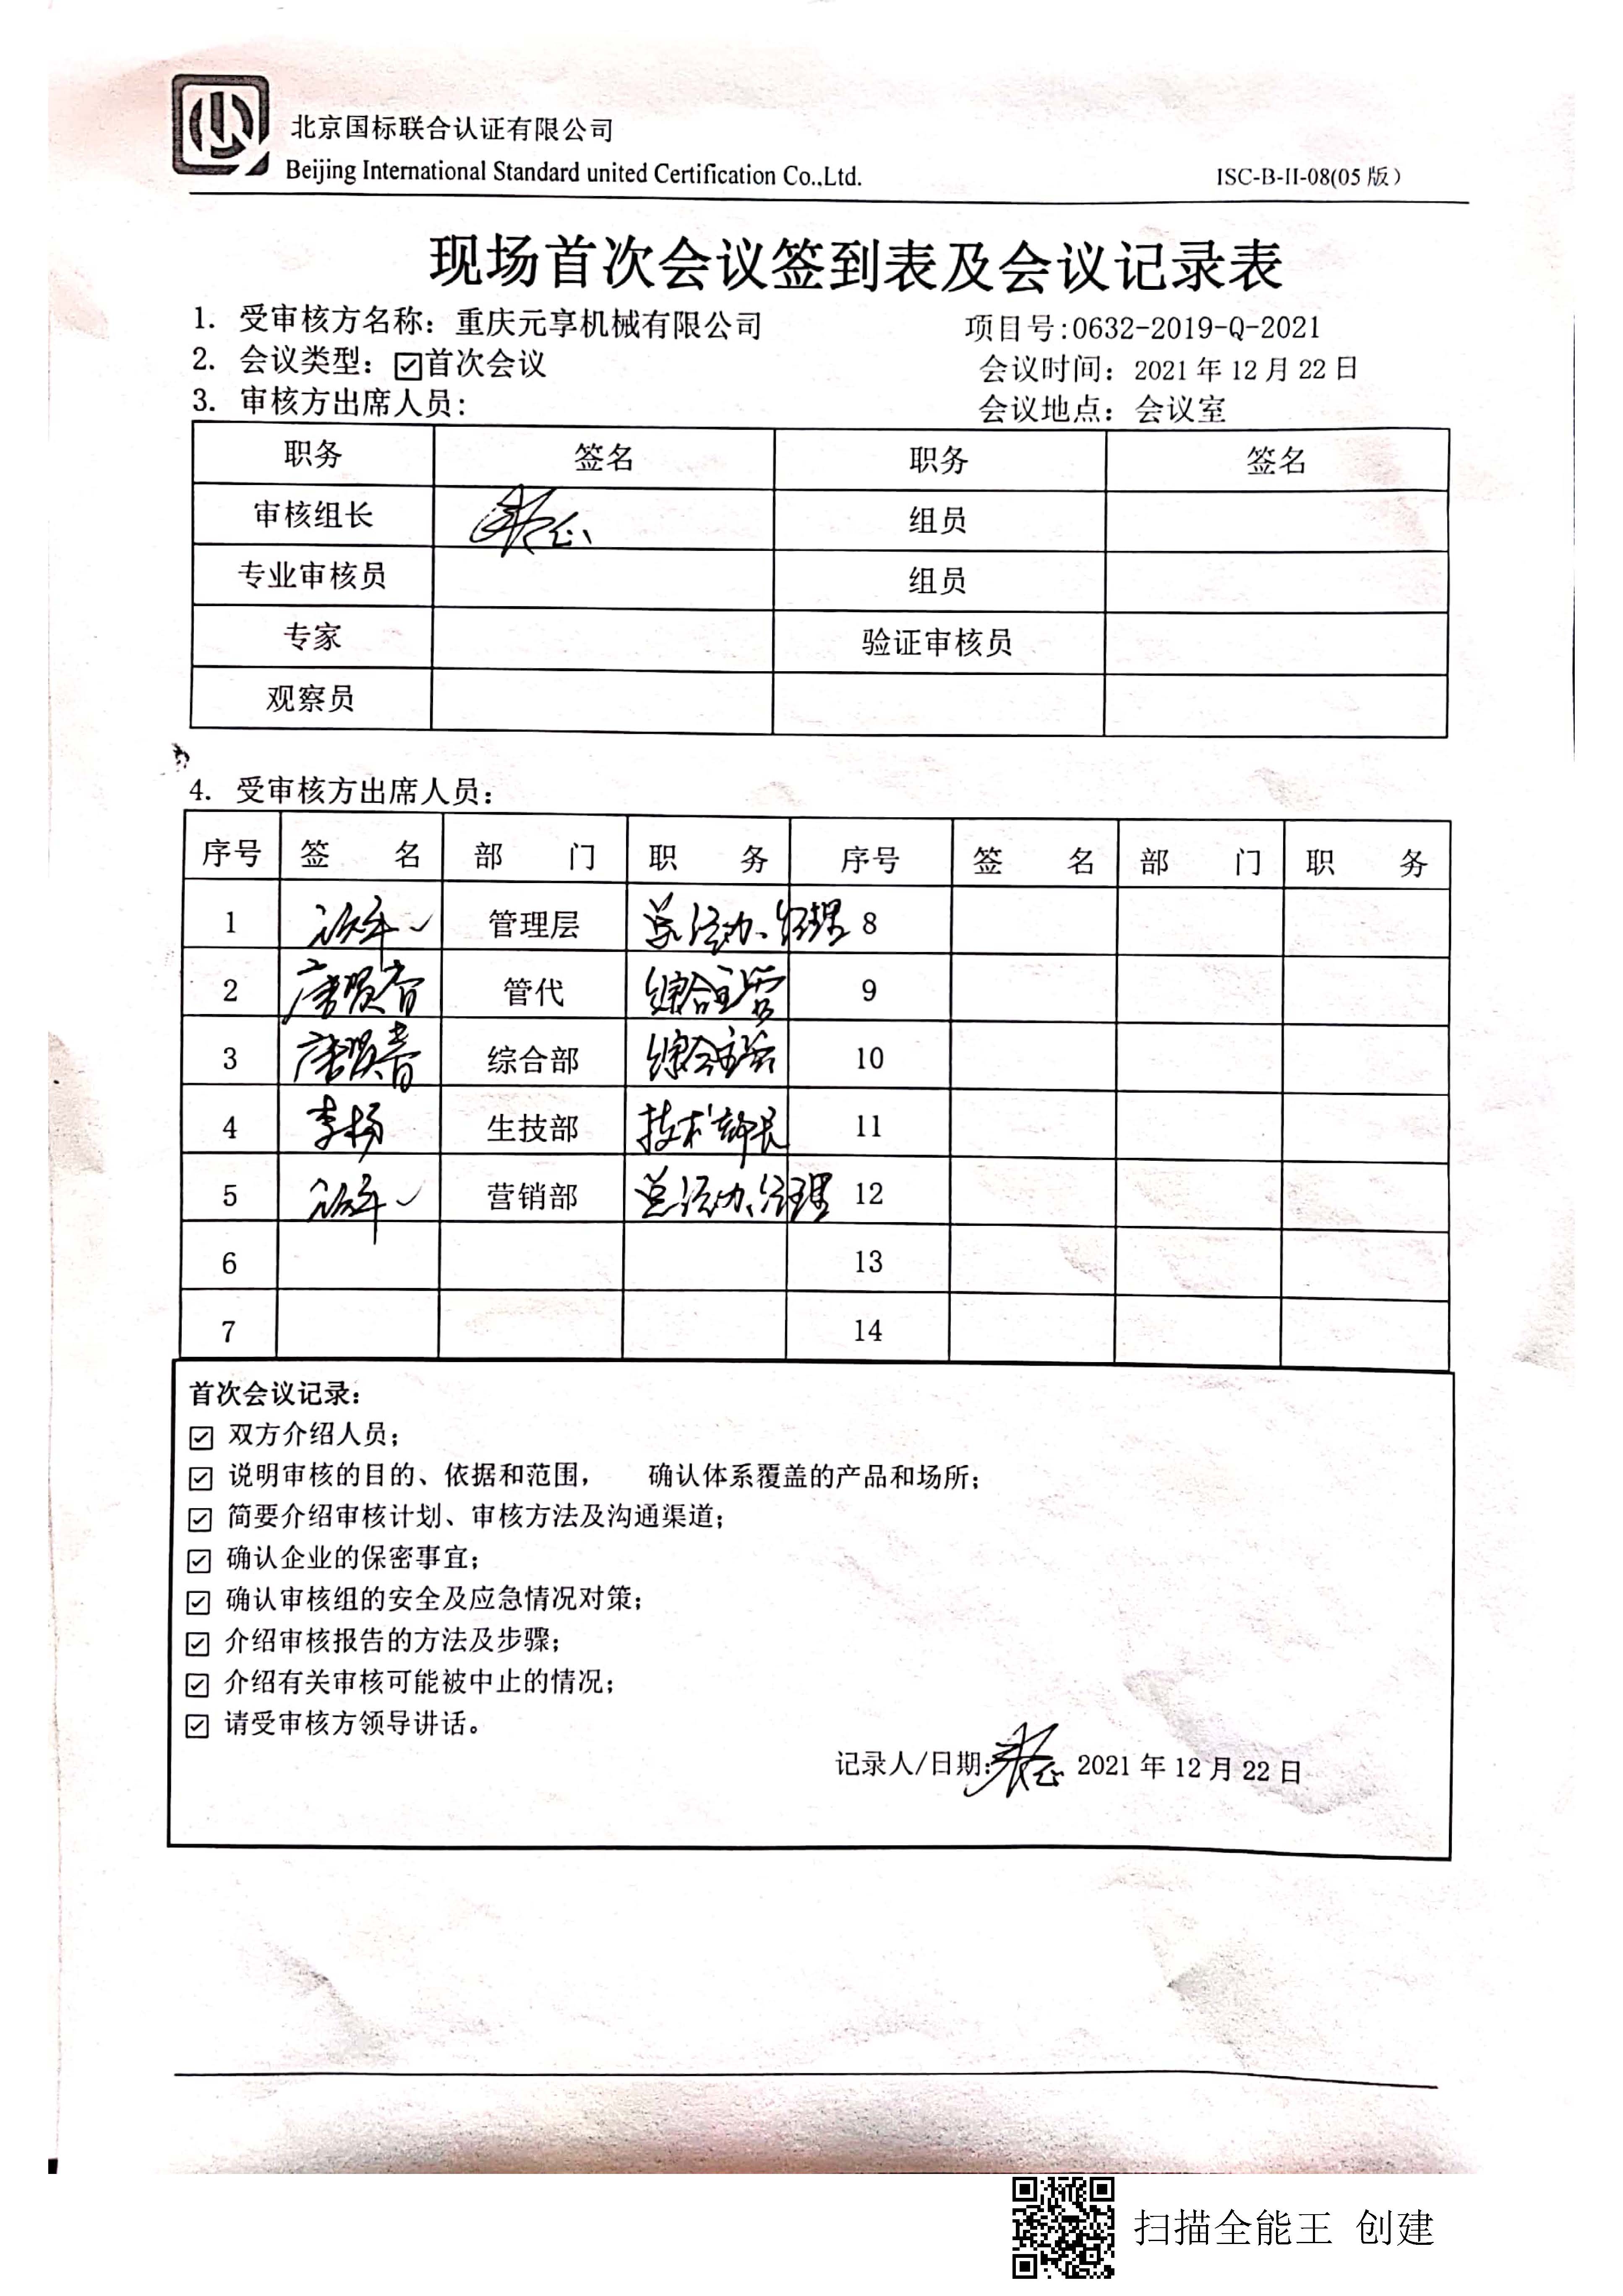 北京国标联合认证有限公司
Beijing International Standard united Certification Co.,Ltd.
ISC-B-II-08(05版)
现场首次会议签到表及会议记录表
1. 受审核方名称：重庆元享机械有限公司 项目号:0632-2019-Q-2021
2. 会议类型：☑首次会议 会议时间：2021年12月22日
3. 审核方出席人员： 会议地点：会议室
职务 签名 职务 签名
审核组长 组员
专业审核员 组员
专家 验证审核员
观察员
4. 受审核方出席人员：
序号 签 名 部 门 职 务 序号 签 名 部 门 职 务
1 管理层 总经办、经理 8
2 管代 综合主管 9
3 综合部 综合主管 10
4 李杨 生技部 技术部长 11
5 营销部 总经办、经理 12
6 13
7 14
首次会议记录：
☑ 双方介绍人员；
☑ 说明审核的目的、依据和范围， 确认体系覆盖的产品和场所；
☑ 简要介绍审核计划、审核方法及沟通渠道；
☑ 确认企业的保密事宜；
☑ 确认审核组的安全及应急情况对策；
☑ 介绍审核报告的方法及步骤；
☑ 介绍有关审核可能被中止的情况；
☑ 请受审核方领导讲话。
记录人/日期： 2021年12月22日
扫描全能王 创建